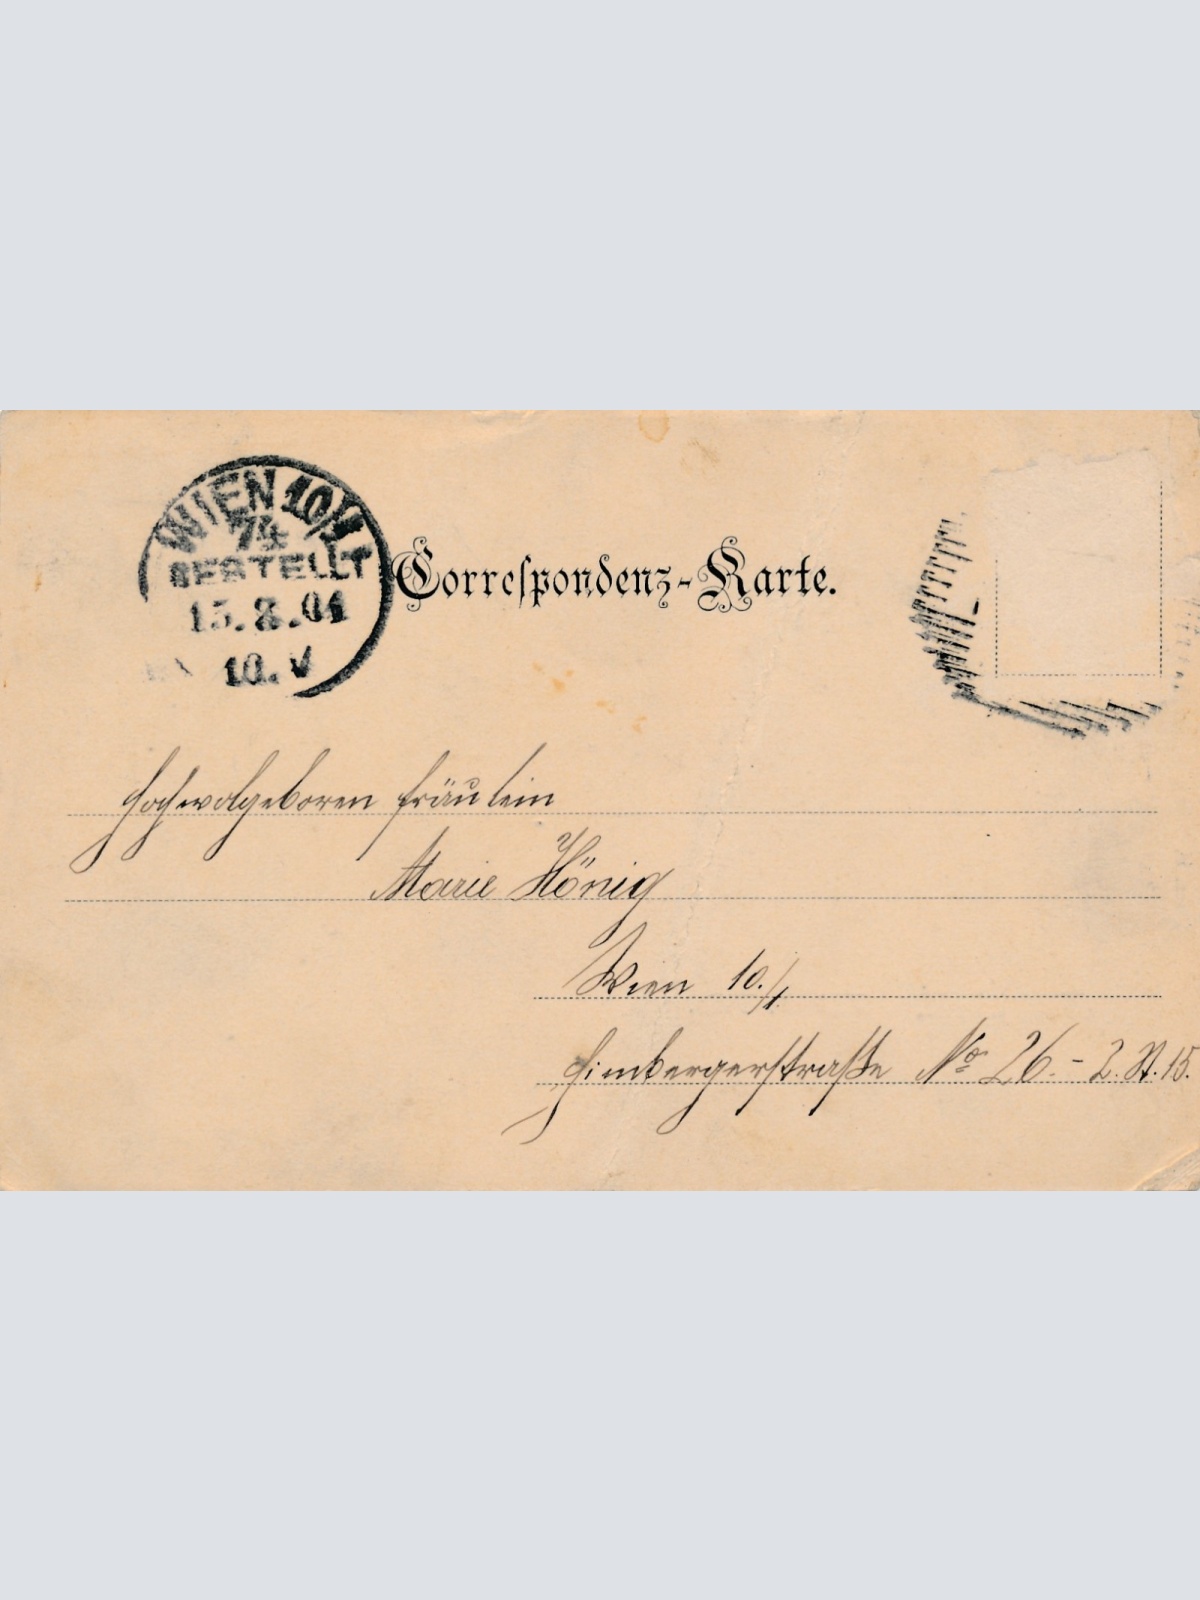 WIEN 10/1
74
BESTELLT
15.8.04
10.V
Correſpondenz-Karte.
Hochwolgeboren Fräulein
Marie Hönig
Wien 10./1
Himbergerstraße Nº 26. - 2. St. 15.